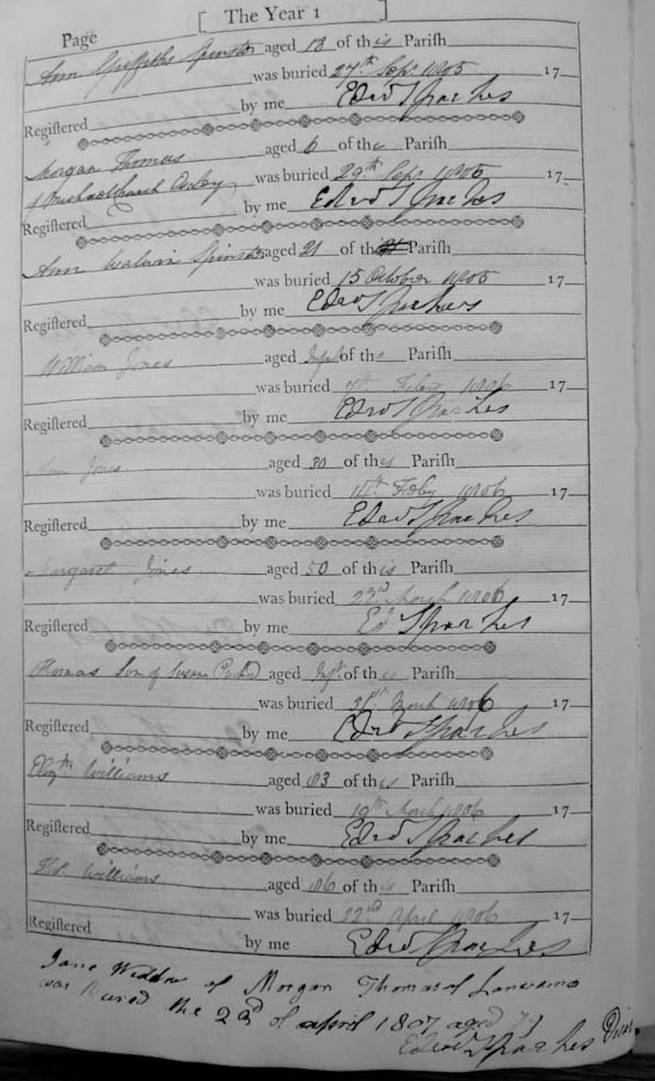 [ The Year 1 ]
Page
Ann Griffiths Spinster aged 18 of this Parish
was buried 27th Sepr 1805 17
Registered by me Edwd Sparkes
Morgan Thomas aged 6 of the Parish
of Michaelchurch was buried 29th Sepr 1805 17
Registered by me Edwd Sparkes
Ann Watkin Spinster aged 21 of th Parish
was buried 15 October 1805 17
Registered by me Edwd Sparkes
William Jones aged Inft of this Parish
was buried Feby 1806 17
Registered by me Edwd Sparkes
Ann Jones aged 30 of this Parish
was buried 14th Feby 1806 17
Registered by me Edwd Sparkes
Margaret Jones aged 50 of this Parish
was buried 22nd March 1806 17
Registered by me Ed Sparkes
Thomas Son of Susan aged Inft of this Parish
was buried 31st March 1806 17
Registered by me Edwd Sparkes
Elizth Williams aged 83 of this Parish
was buried 19th March 1806 17
Registered by me Edwd Sparkes
Williams aged 86 of this Parish
was buried 22nd April 1806 17
Registered by me Edwd Sparkes
Jane Widdow of Morgan Thomas of
was Buried the 2nd of april 1807 aged
Edwd Sparkes Vicar